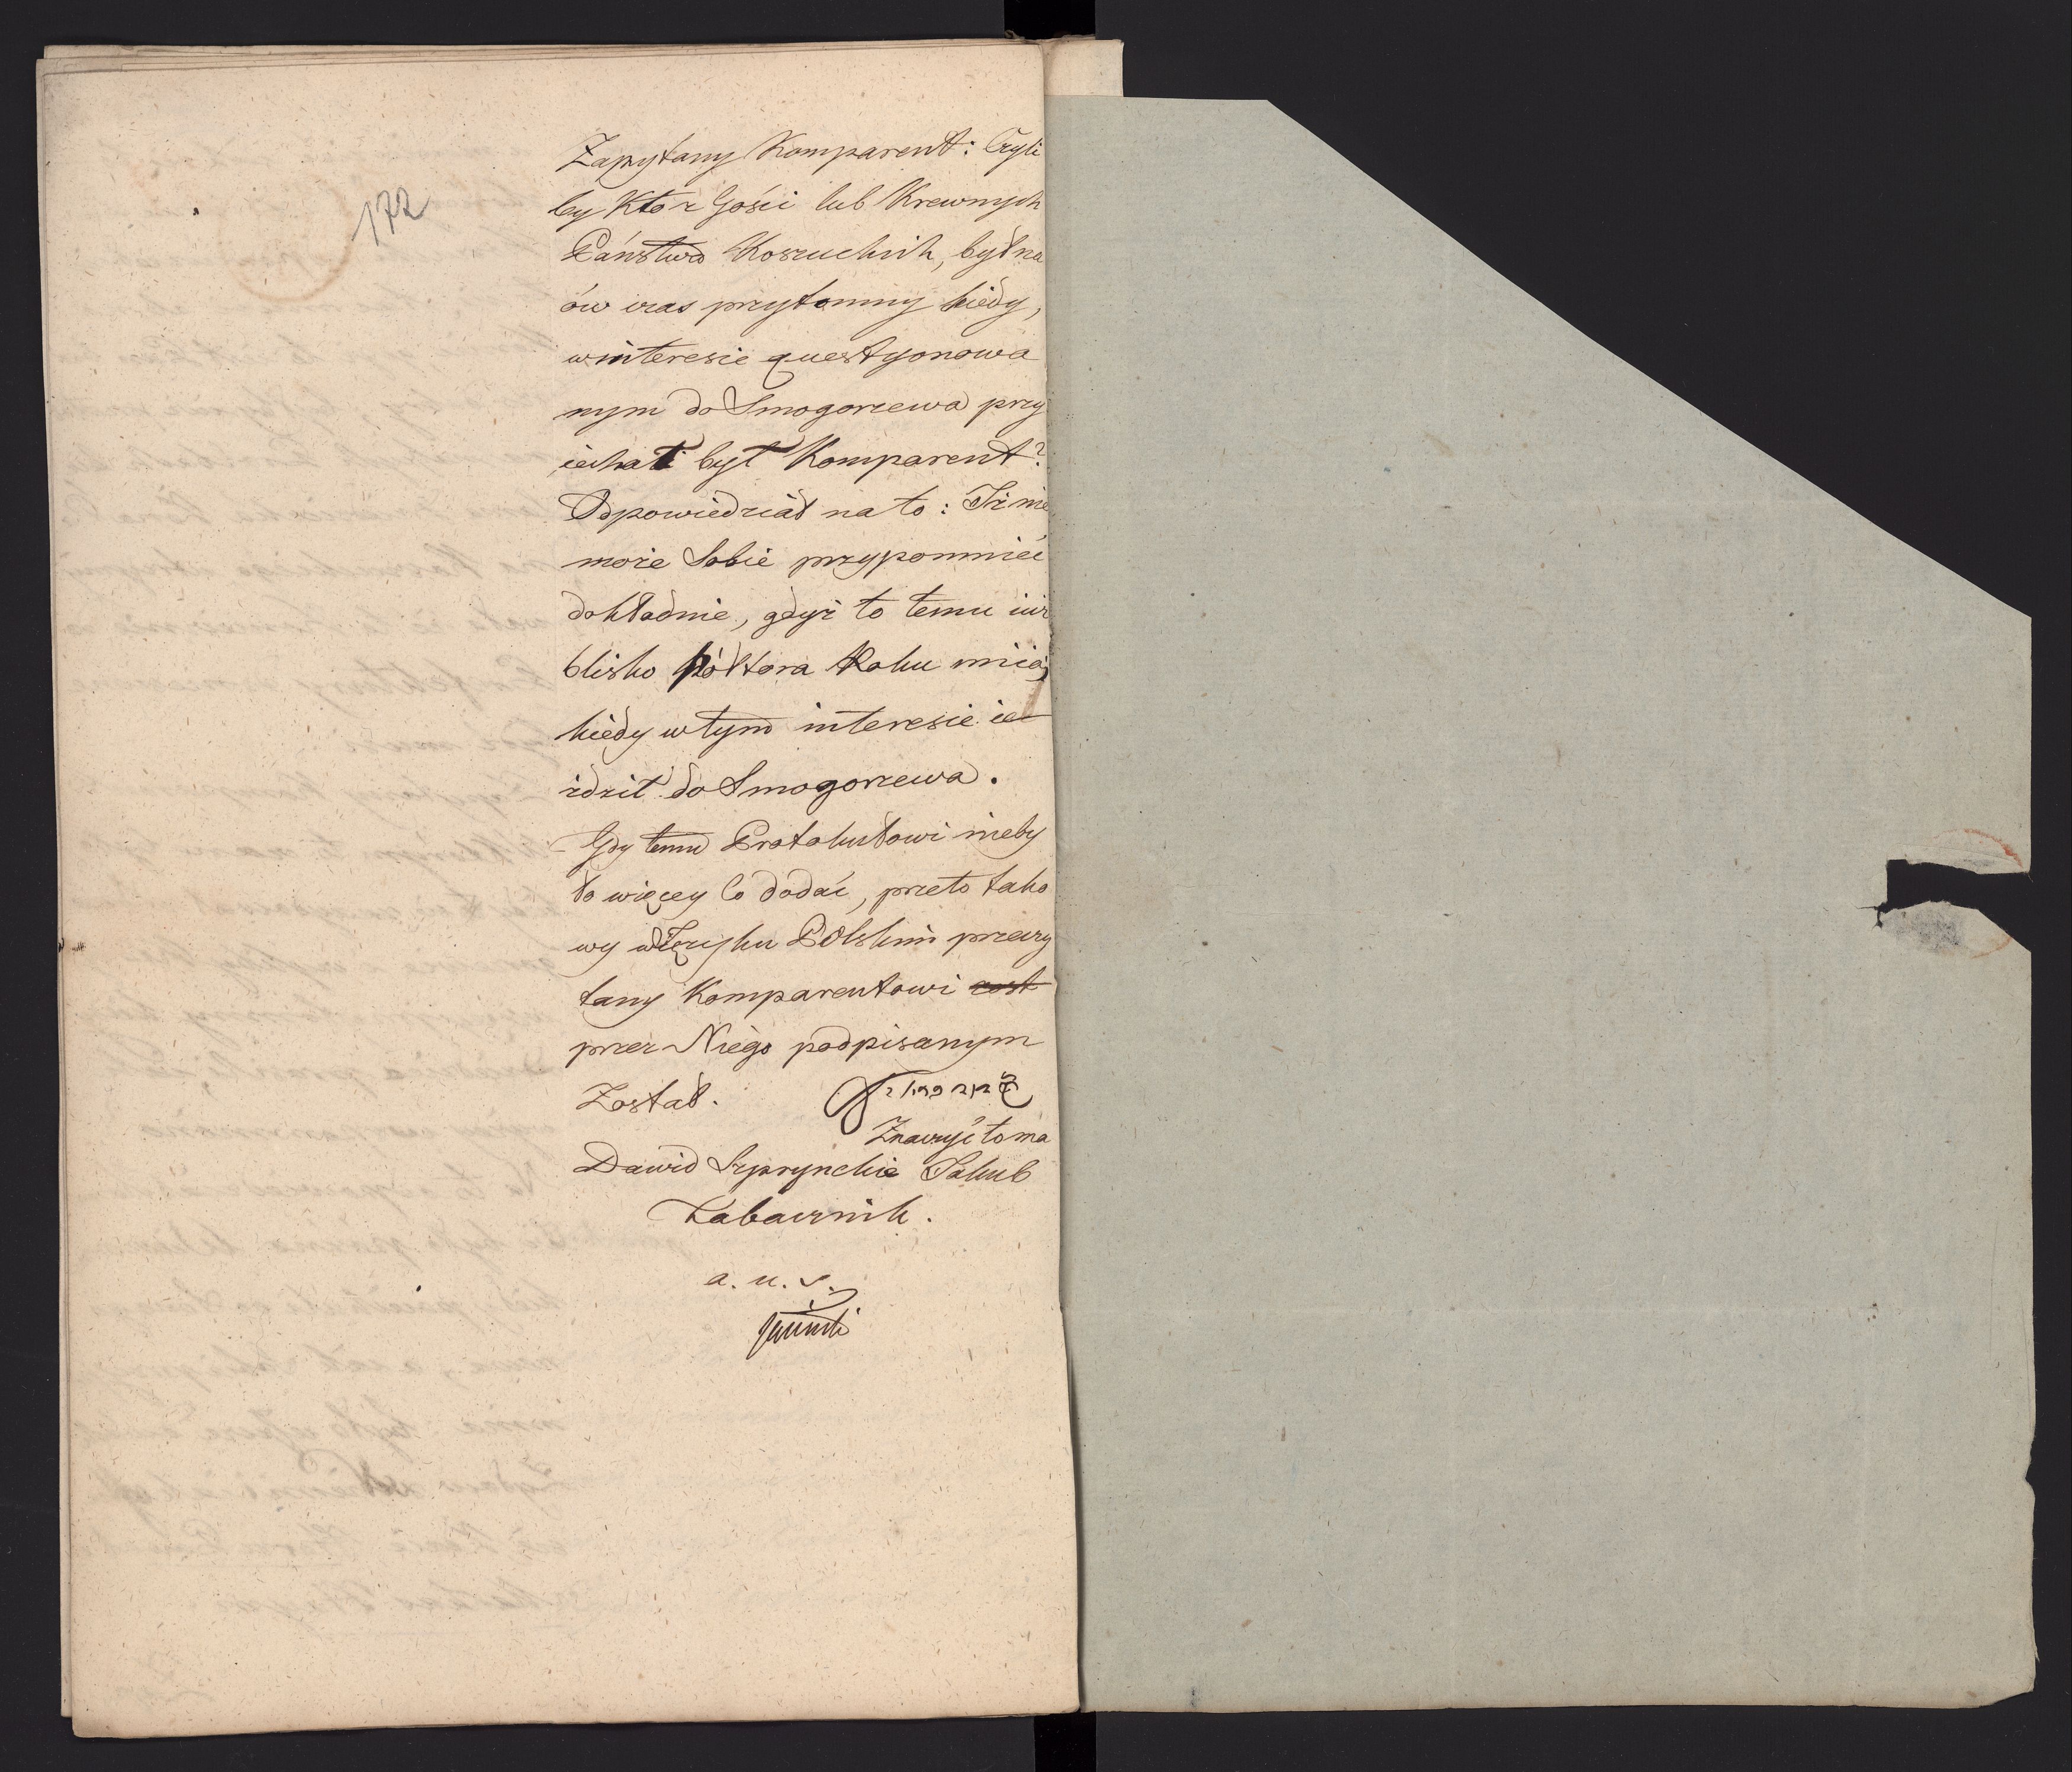 172
Zapytany Komparent: Czyli
by Któż Gości lub Krewnych
Państwa Koszuckich, był na
ów czas przytomny kiedy,
w interesie questyonowa
nym do Smogorzewa przy
iechał był Komparent?
Odpowiedział na to: Iż nie
może Sobie przypomnieć
dokładnie, gdyż to temu iuż
blisko półtora Roku miia,
kiedy w tym interesie ie
zdził do Smogorzewa.
Gdy temu Protokułowi nieby
ło więcey co dodać, przeto tako
wy w Języku Polskim przeczy
tany Komparentowi
przez Niego podpisanym
Został.
Znaczyć to ma
Dawid Szprynckie Jakub
Tabacznik.
a. u. s.